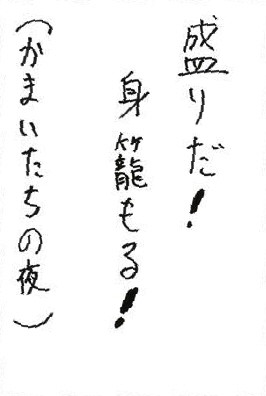 盛りだ！
身籠もる！
（かまいたちの夜）